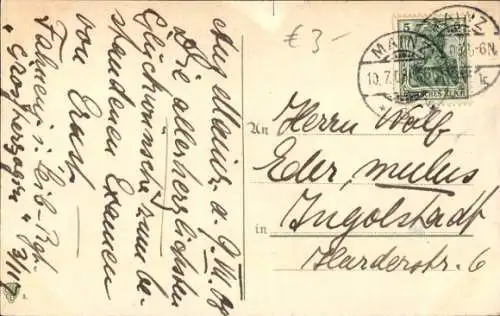 € 3-
MAINZ
10.7.09
5
DEUTSCHES REICH
Aus Mainz, d. 9. VII. 09
Die allerherzlichsten
Glückwünsche zum be-
standenen Examen
von Ernst
Fahnenj. i. Leib-Rgt.
"Grossherzogin"
3/117
An Herrn Wolf
Eder, mulus
in Ingolstadt
Harderstr. 6